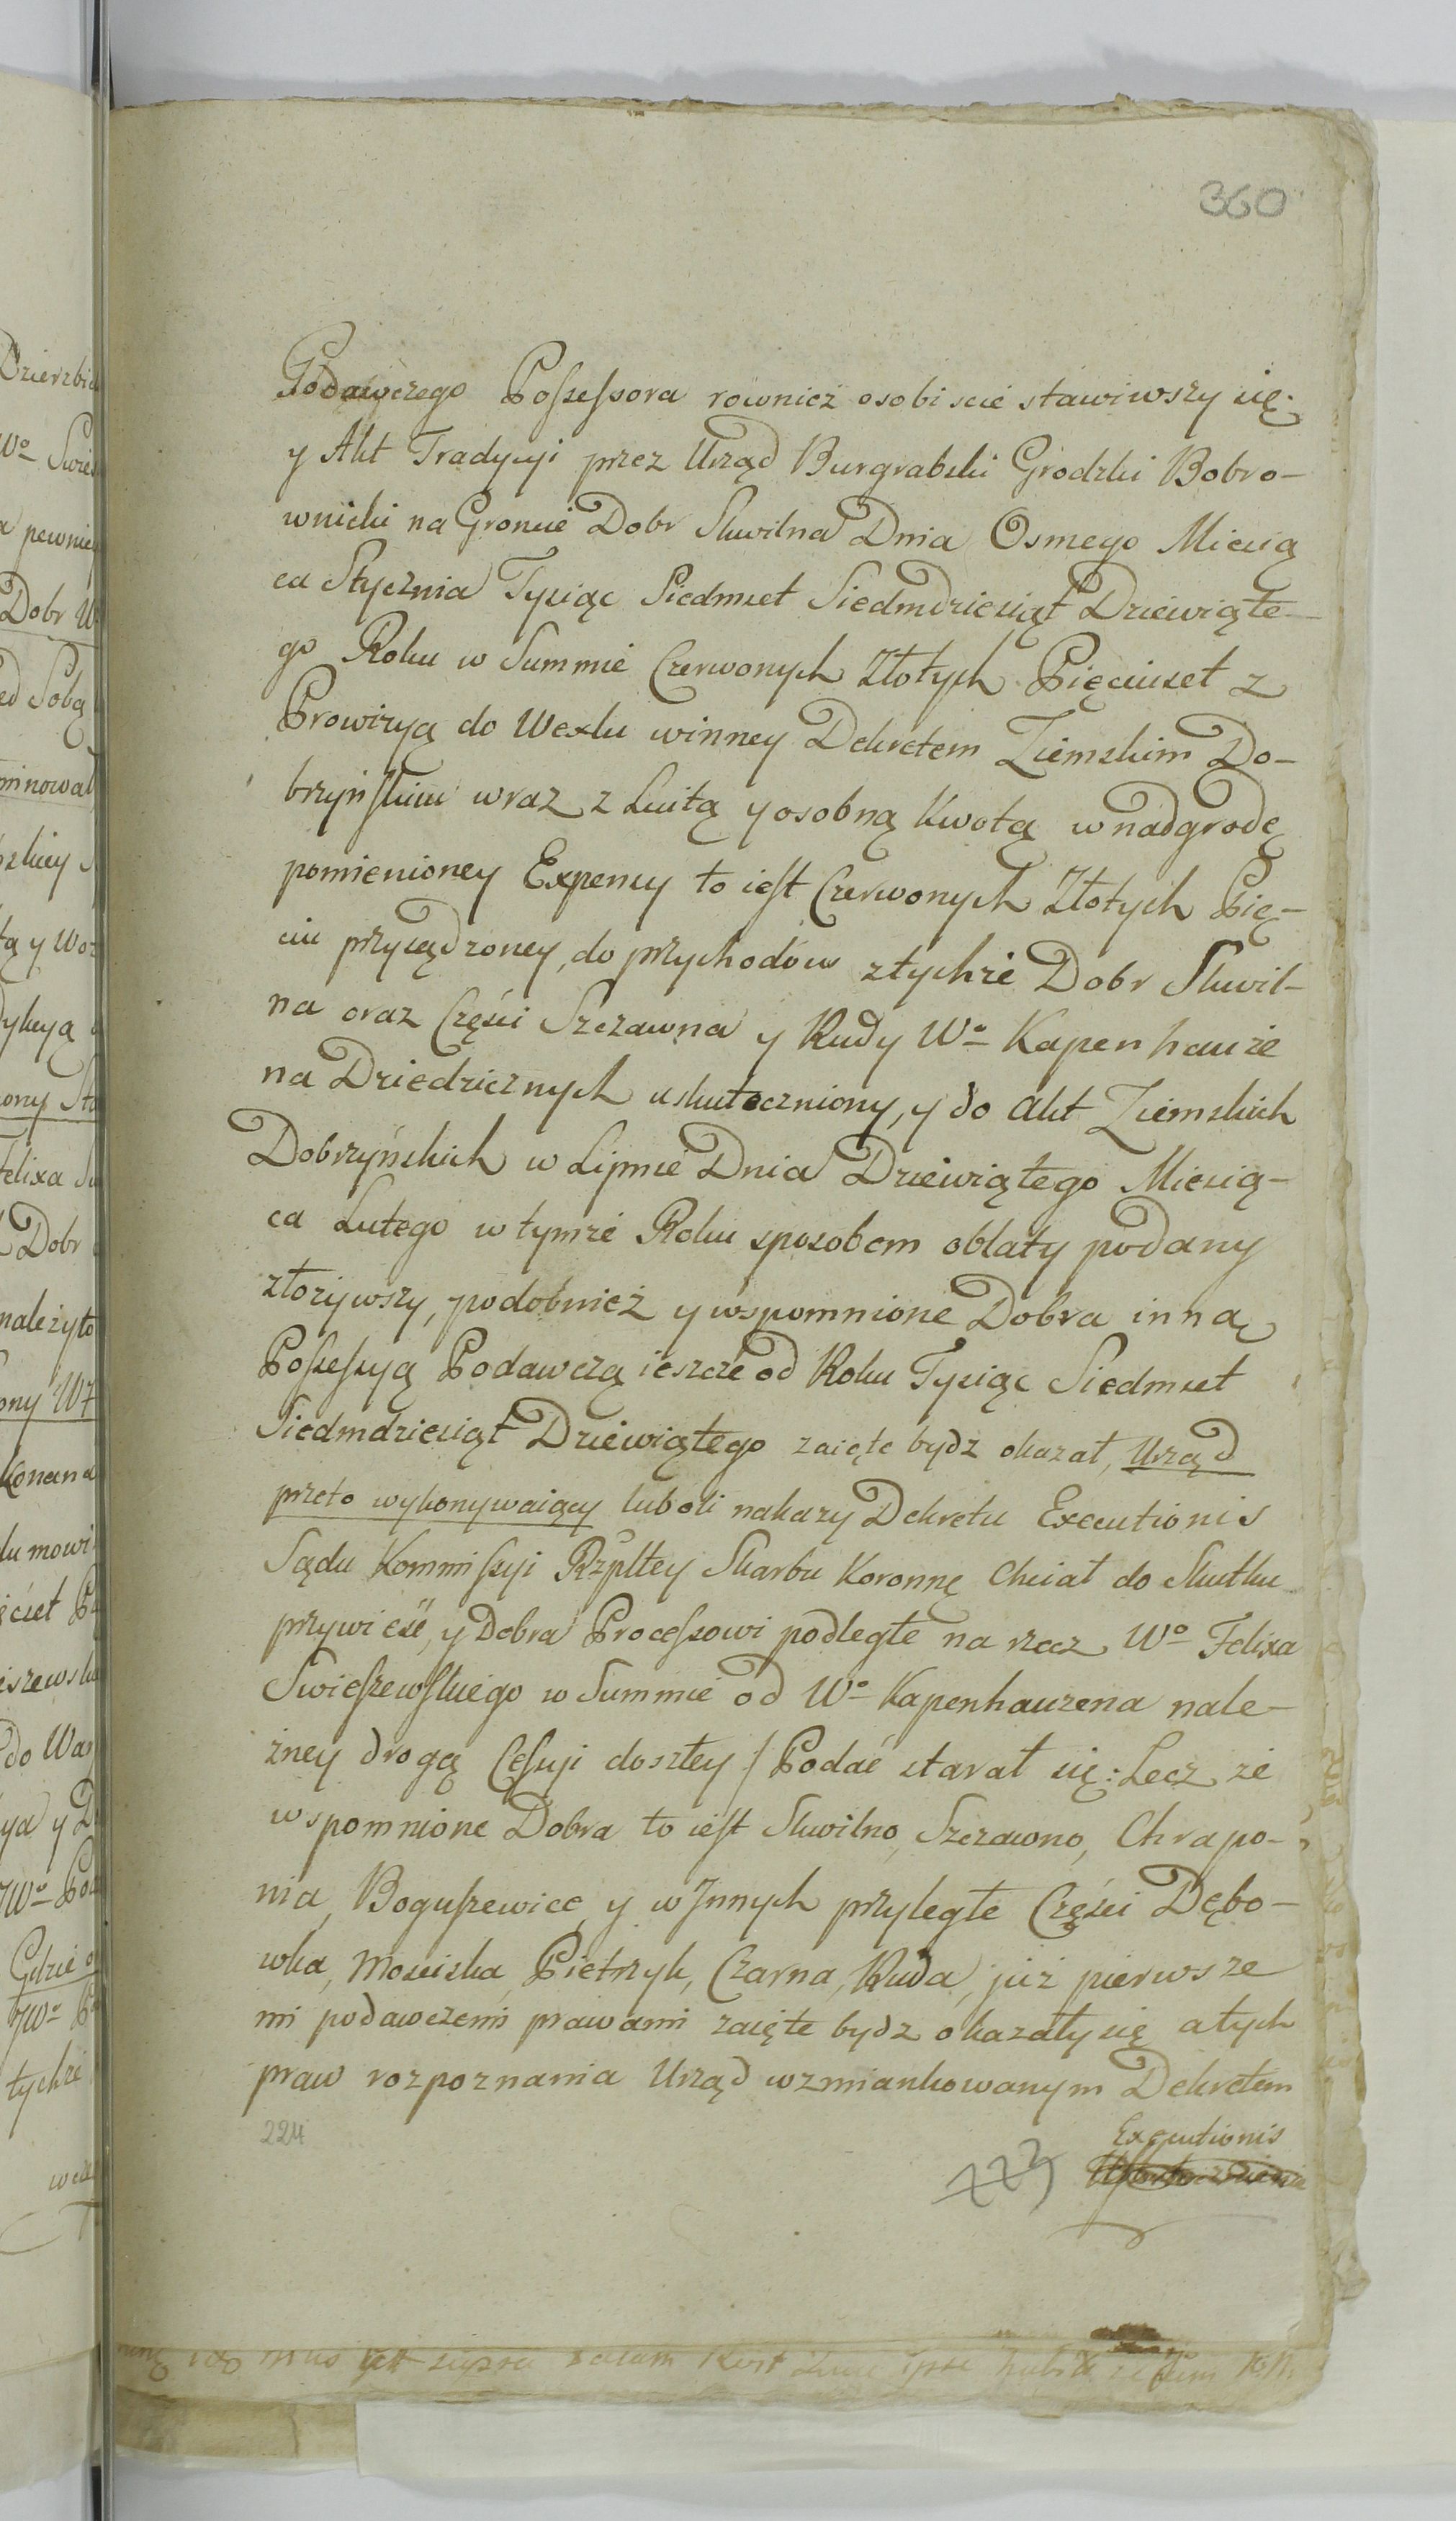 360
Podawczego Possessora rownież osobiscie stawiwszy się
y Akt Tradycyi przez Urząd Burgrabski Grodzki Bobro-
wnicki na Groncie Dobr Skwilna Dnia Osmego Miesią
ca Stycznia Tysiąc Siedmset Siedmdziesiąt Dziewiąte-
go Roku w Summie Czerwonych Złotych Pięciuset z
Prowizyą do Wexlu winney Dekretem Ziemskim Do-
brzyńskim wraz z Luitą y osobną kwotą w nadgrodę
pomienioney Expensy to iest Czerwonych Złotych Pię-
ciu przysądzoney, do przychodów z tychże Dobr Skwil-
na oraz Części Szczawna y Rudy Wo Kapenhauze
na Dziedzicznych uskuteczniony, y do Akt Ziemskich
Dobrzyńskich w Lipnie Dnia Dziewiątego Miesią-
ca Lutego w tymże Roku sposobem oblaty podany
złożywszy, podobnież y wspomnione Dobra inną
Possessyą Podawczą ieszcze od Roku Tysiąc Siedmset
Siedmdziesiąt Dziewiątego zaięte bydz okazał, Urząd
przeto wykonywaiący luboli nakazy Dekretu Executionis
Sądu Kommissyi Rzpltey Skarbu Koronne Chciał do Skutku
przywieść, y Dobra Processowi podległe na rzecz Wo Felixa
Swieszewskiego w Summie od Wo Kapenhauzena nale-
żney drogą Cessyi doszłey / Podać starał się: Lecz że
wspomnione Dobra to iest Skwilno, Szczawno, Chrapo-
nia, Boguszewice, y w Jnnych przyległe Części Dębo-
wka, Mosciska, Pietrzyk, Czarna, Ruda, już pierwsze
mi podawczemi prawami zaięte bydz okazały się a tych
praw rozpoznania Urząd wzmiankowanym Dekretem
Executionis
224
223